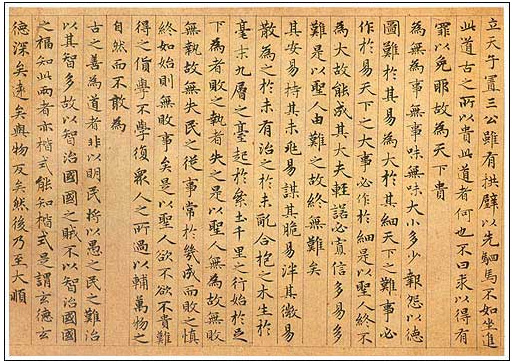 立天子置三公雖有拱璧以先駟馬不如坐進
此道古之所以貴此道者何也不曰求以得有
罪以免耶故為天下貴
為無為事無事味無味大小多少報怨以德
圖難於其易為大於其細天下之難事必
作於易天下之大事必作於細是以聖人終不
為大故能成其大夫輕諾必寡信多易多
難是以聖人由難之故終無難矣
其安易持其未兆易謀其脆易泮其微易
散為之於未有治之於未亂合抱之木生於
毫末九層之臺起於累土千里之行始於足
下為者敗之執者失之是以聖人無為故無敗
無執故無失民之從事常於幾成而敗之慎
終如始則無敗事矣是以聖人欲不欲不貴難
得之貨學不學復眾人之所過以輔萬物之
自然而不敢為
古之善為道者非以明民將以愚之民之難治
以其智多故以智治國國之賊不以智治國國
之福知此兩者亦楷式能知楷式是謂玄德玄
德深矣遠矣與物反矣然後乃至大順